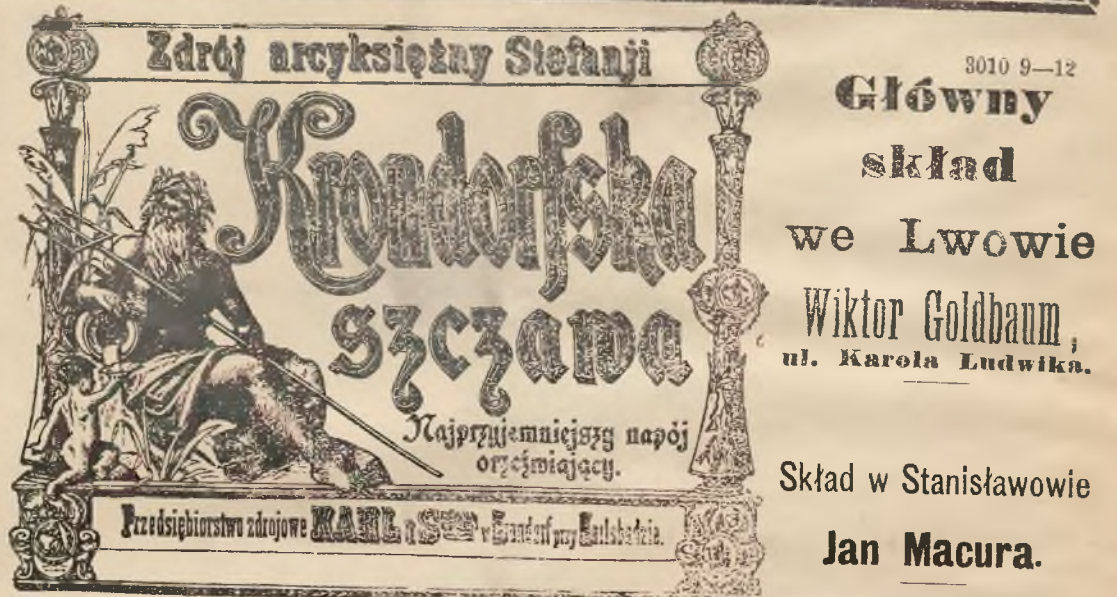 Zdrój arcyksiężny Stefanji
Krondorfska
szczawa
Najprzyjemniejszy napój
orzeźwiający.
Przedsiębiorstwo zdrojowe KARL i w Krondorf przy Karlsbadzie.
3010 9—12
Główny
skład
we Lwowie
Wiktor Goldbaum,
ul. Karola Ludwika.
Skład w Stanisławowie
Jan Macura.